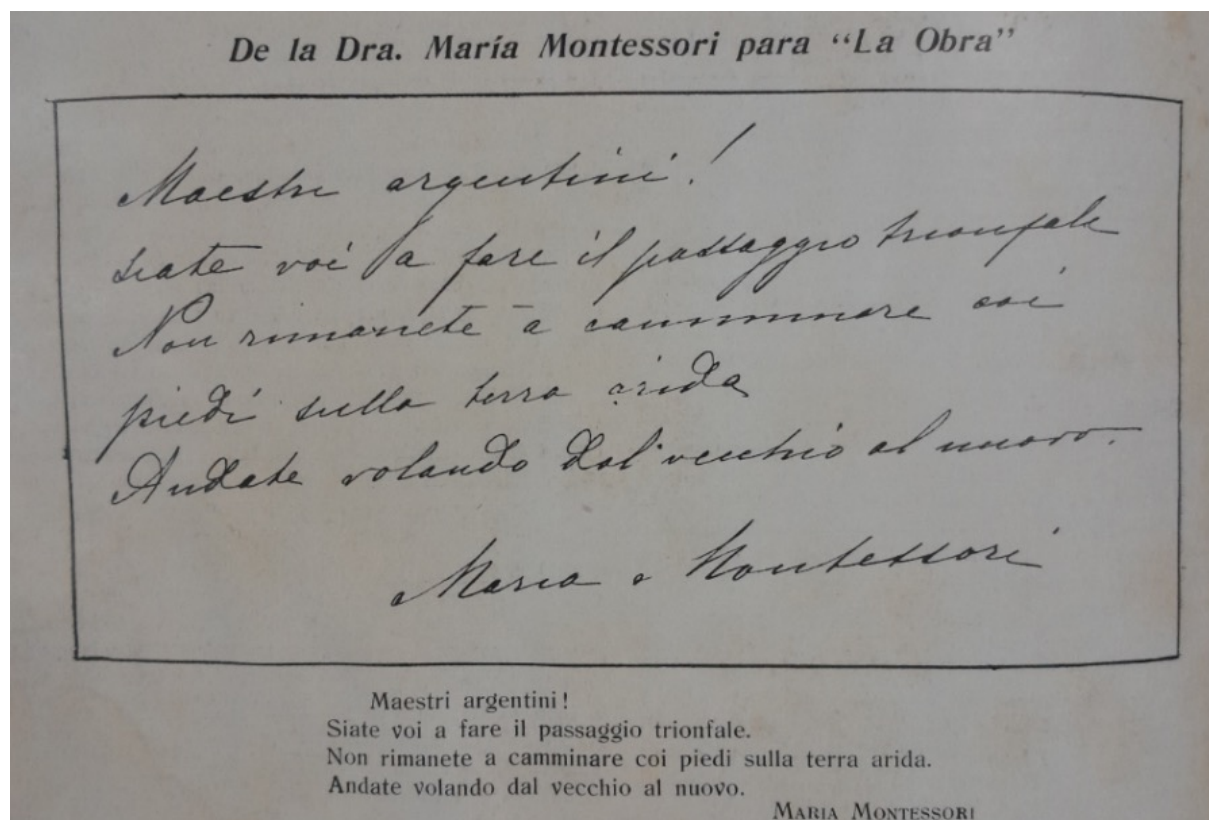 De la Dra. María Montessori para “La Obra”
Maestri argentini!
siate voi a fare il passaggio trionfale
Non rimanete a camminare coi
piedi sulla terra arida
Andate volando dal vecchio al nuovo.
Maria Montessori
Maestri argentini!
Siate voi a fare il passaggio trionfale.
Non rimanete a camminare coi piedi sulla terra arida.
Andate volando dal vecchio al nuovo.
MARIA MONTESSORI